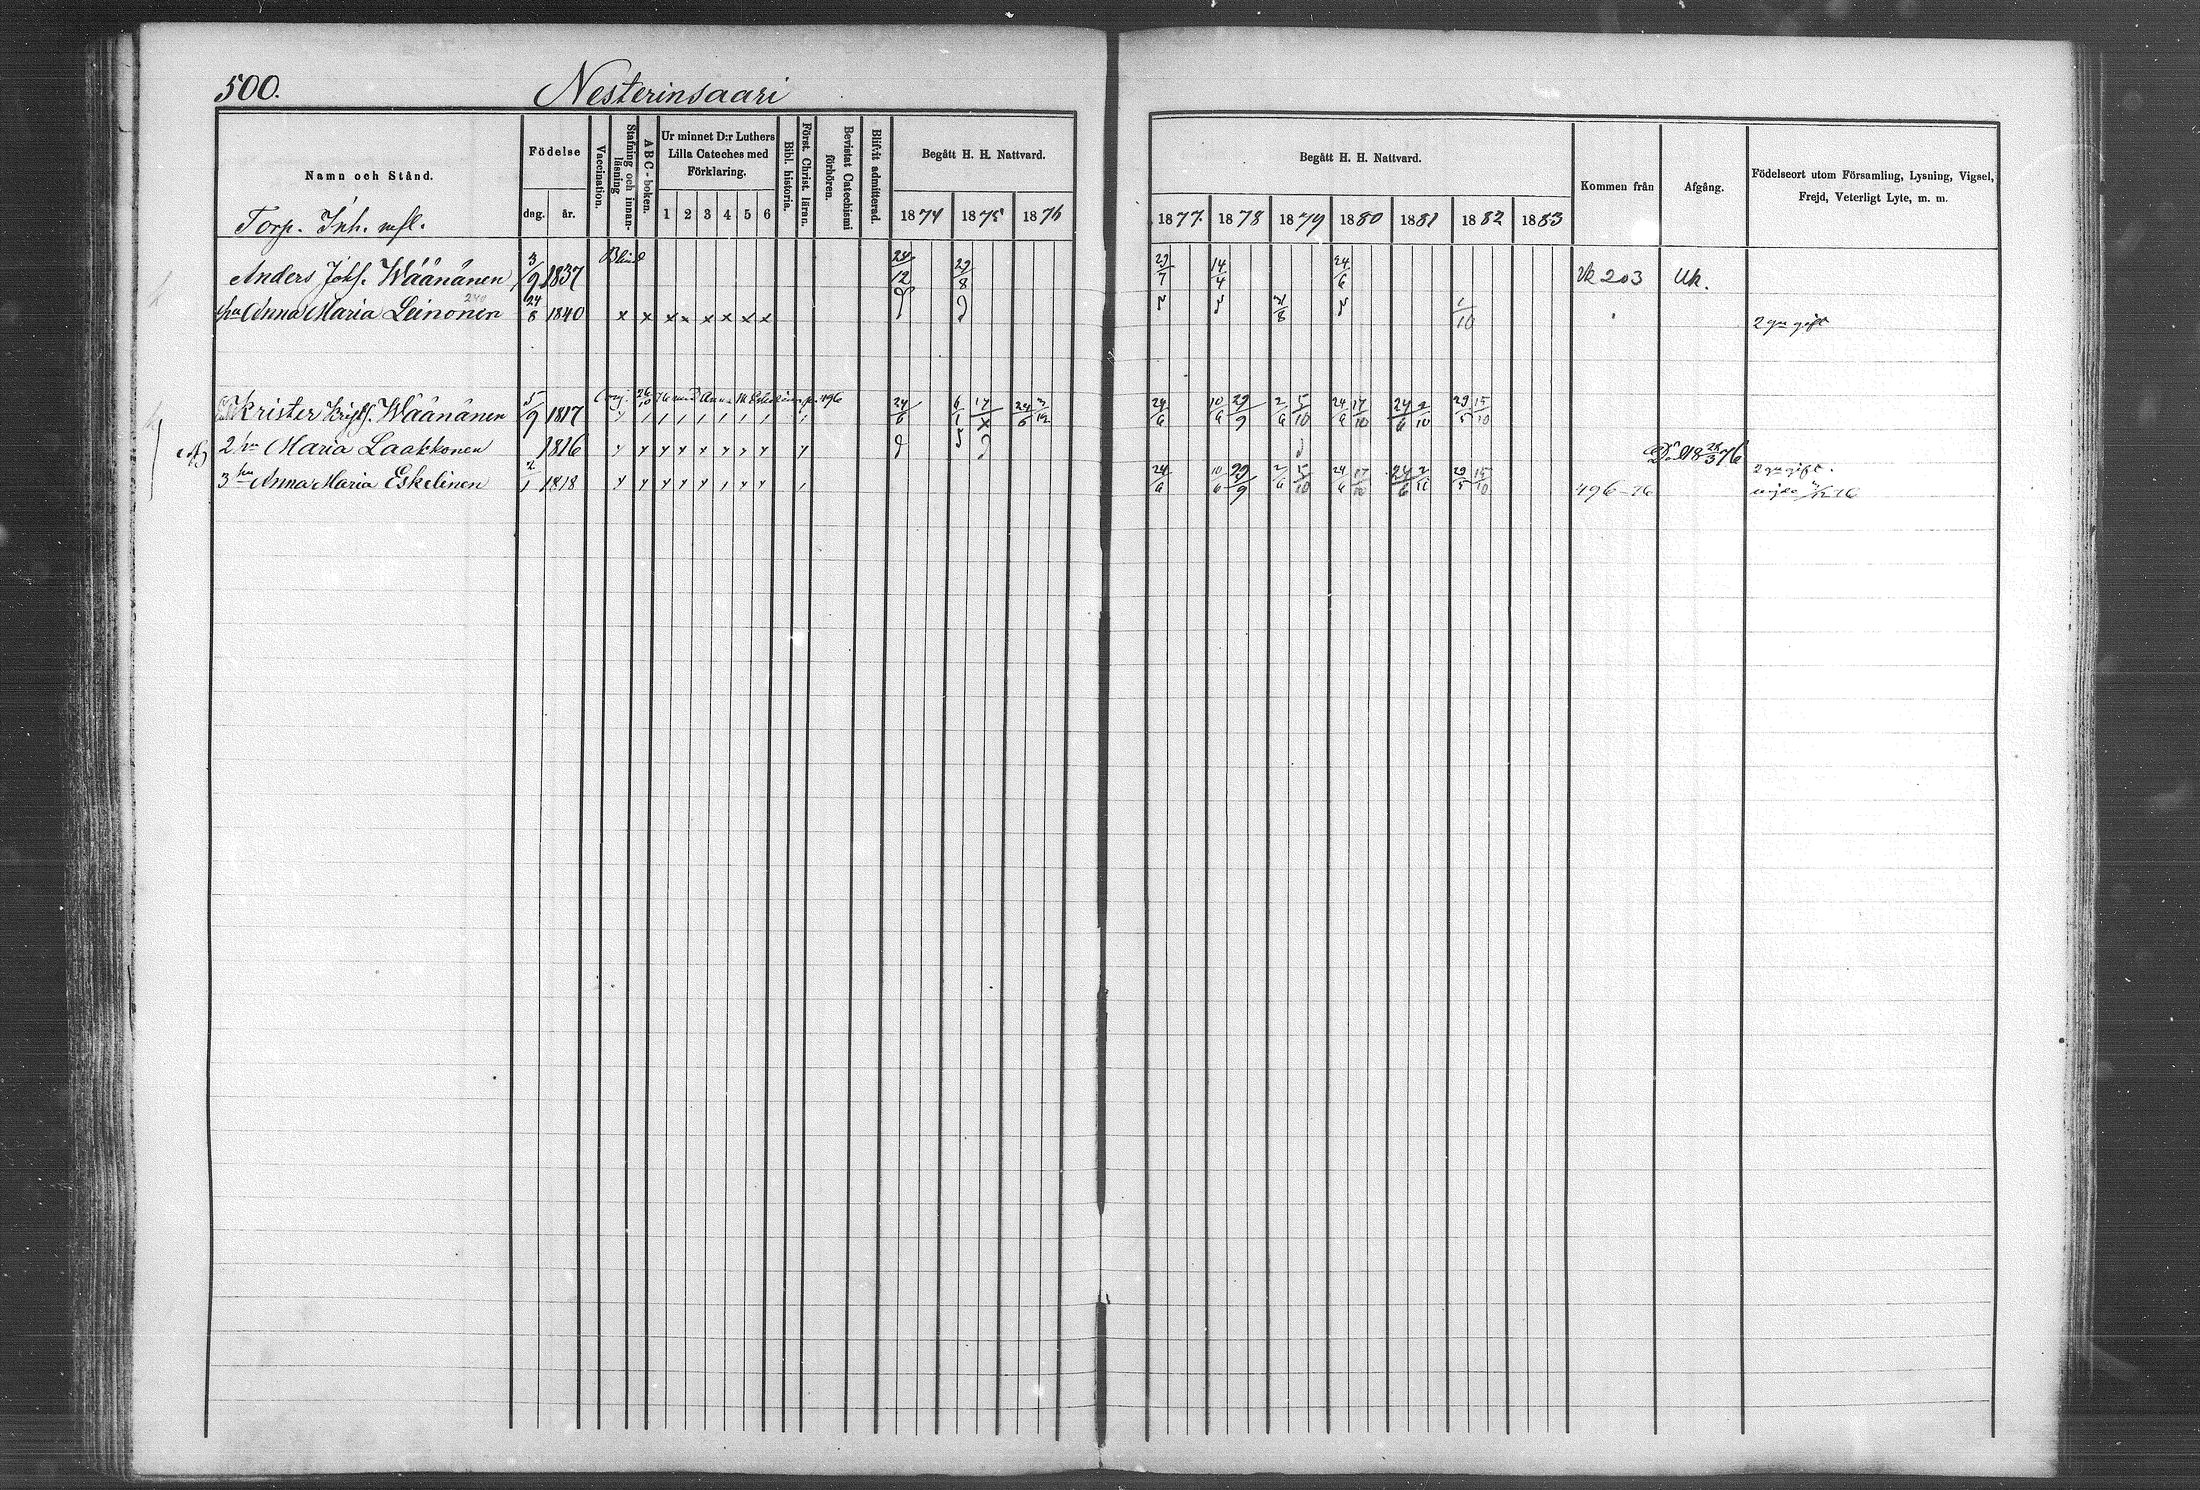 500. Nesterinsaari
Namn och Stånd.
Födelse
dag. år.
Vaccination.
Stafning och innan-
läsning
A B C - boken.
Ur minnet D:r Luthers
Lilla Cateches med
Förklaring.
1 2 3 4 5 6
Bibl. historia.
Först. Christ. läran.
Bevistat Catechismi
förhören.
Blifvit admitterad.
Begått H. H. Nattvard.
1874 1875 1876
Begått H. H. Nattvard.
1877 1878 1879 1880 1881 1882 1883
Kommen från
Afgång.
Födelseort utom Församling, Lysning, Vigsel,
Frejd, Veterligt Lyte, m. m.
Torp. Inh. mfl.
Anders Johs. Wäänänen 3/9 1837 Blind 24/12 29/8 29/7 14/4 24/6 Uk 203 Uk.
hu Anna Maria Leinonen 240 24/8 1840 x x x x x x x x 1/10 2 gn gift
26/10 76 med Anna M Eskelinen p. 496
Krister Krists. Wäänänen 5/9 1817 24/6 6/1 17/x 24/6 3/12 24/6 10/6 29/9 2/6 5/10 24/6 17/10 24/6 2/10 29/5 15/10
2 hu Maria Laakkonen 1816 Död 18 28/3 76
3 hu Anna Maria Eskelinen 1818 24/6 10/6 29/9 2/6 5/10 24/6 17/10 24/6 29/5 15/10 496-76 2 gn gift.